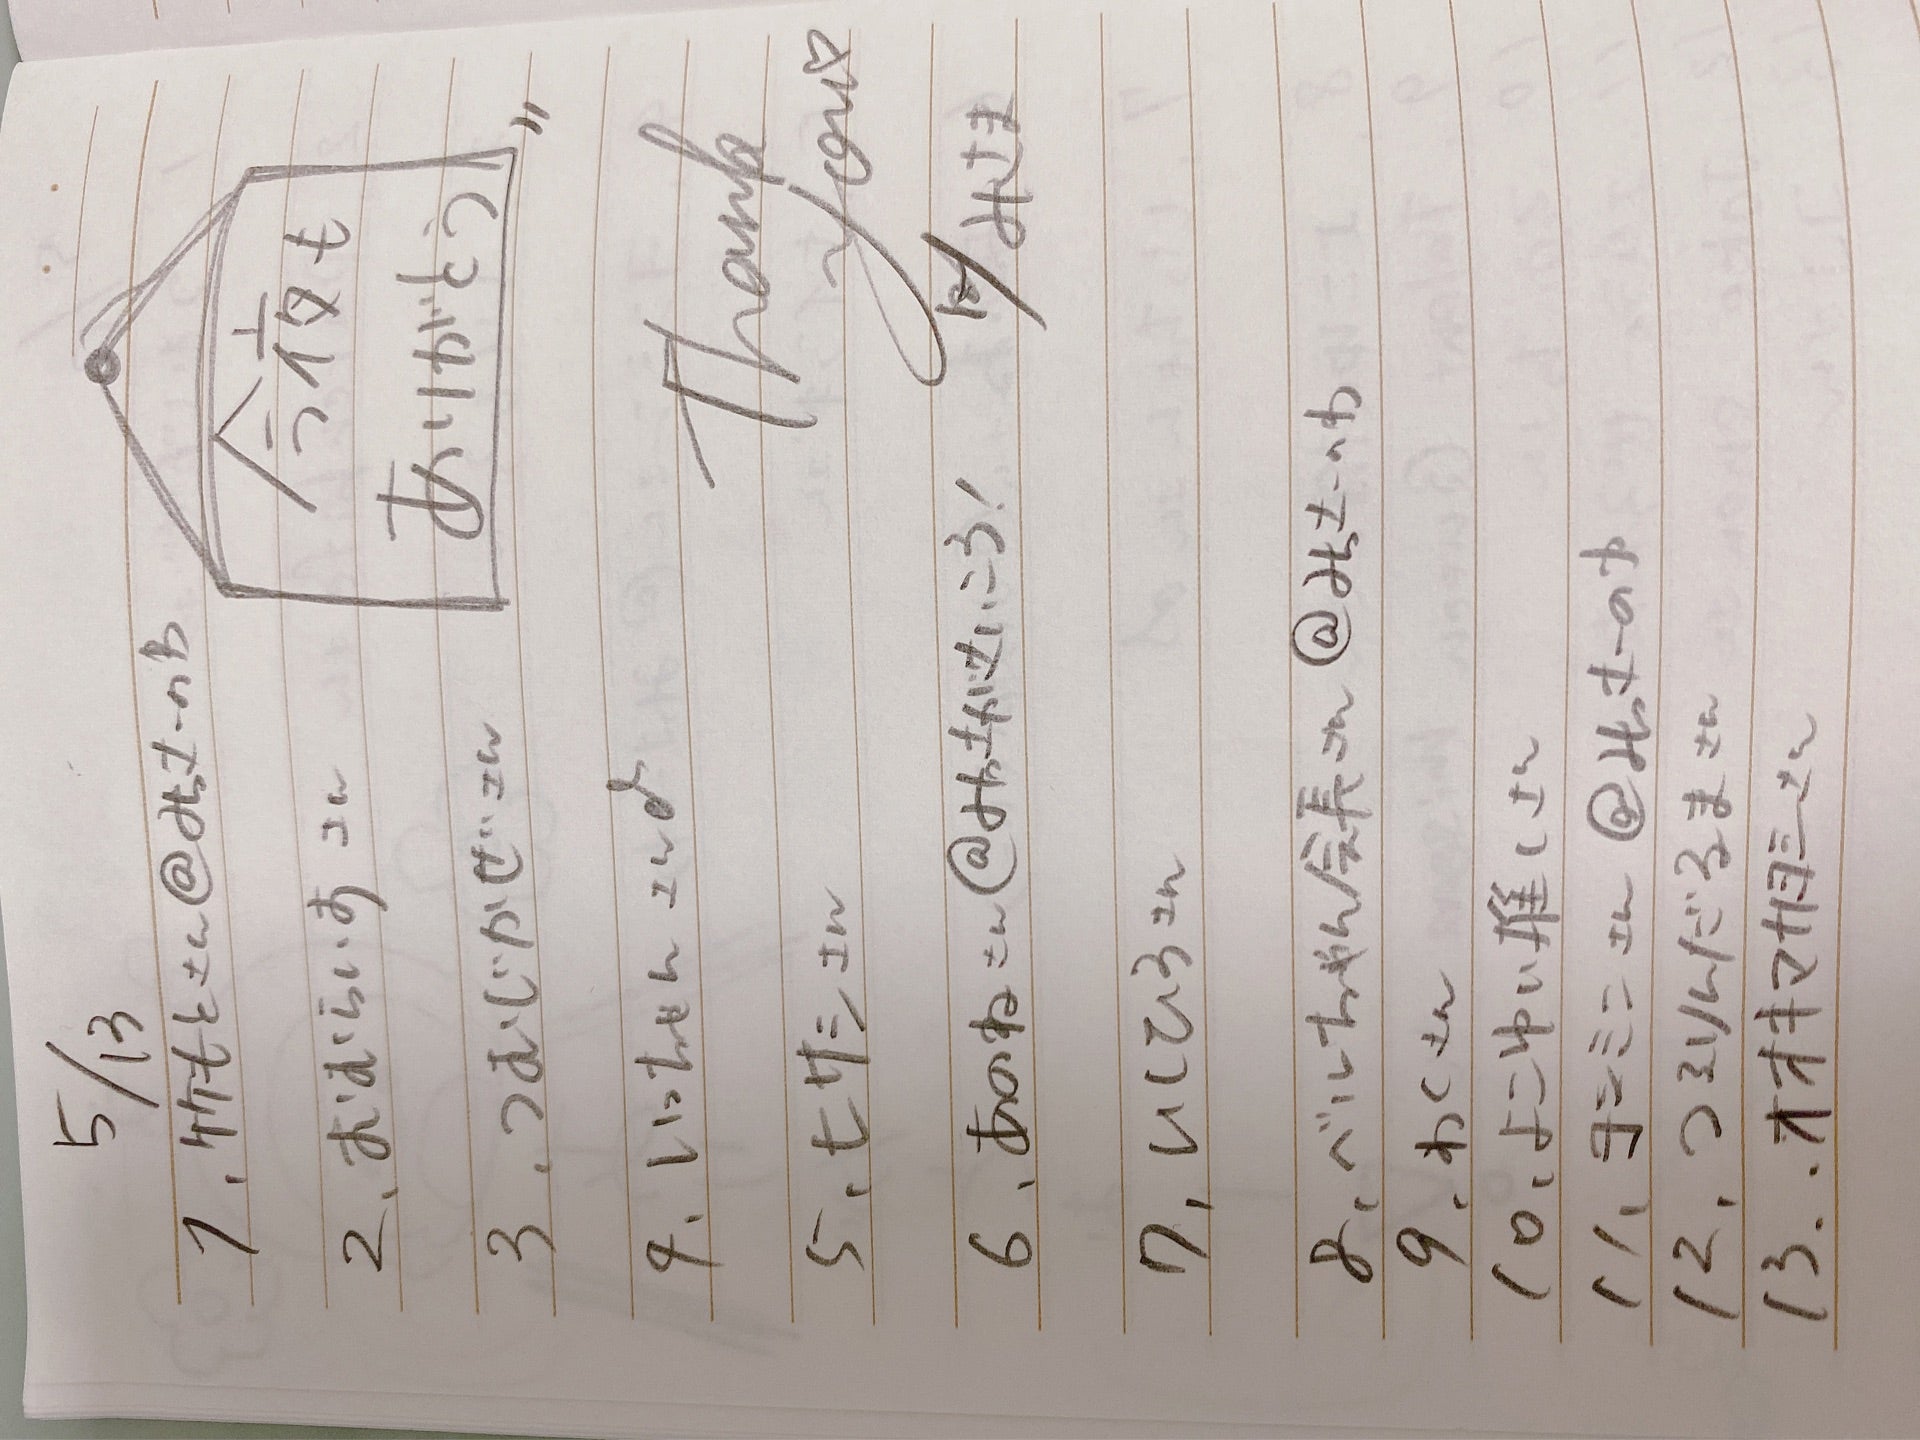 5/13
1. 竹もとさん@みさーのわ
2. おむらいすさん
3. つむじかぜさん
4. いっちせんさん♂
5. ヒサシさん
6. あのねさん@みさがせいこう!
7. いしひろさん
8. べいちゃん会長さん@みさーのわ
9. わくさん
10. よこゆい推しさん
11. テラミニさん@みさーのわ
12. つるりんだるまさん
13. オオキマサヨシさん
今夜も
ありがとう
Thank
You♡
by みさき